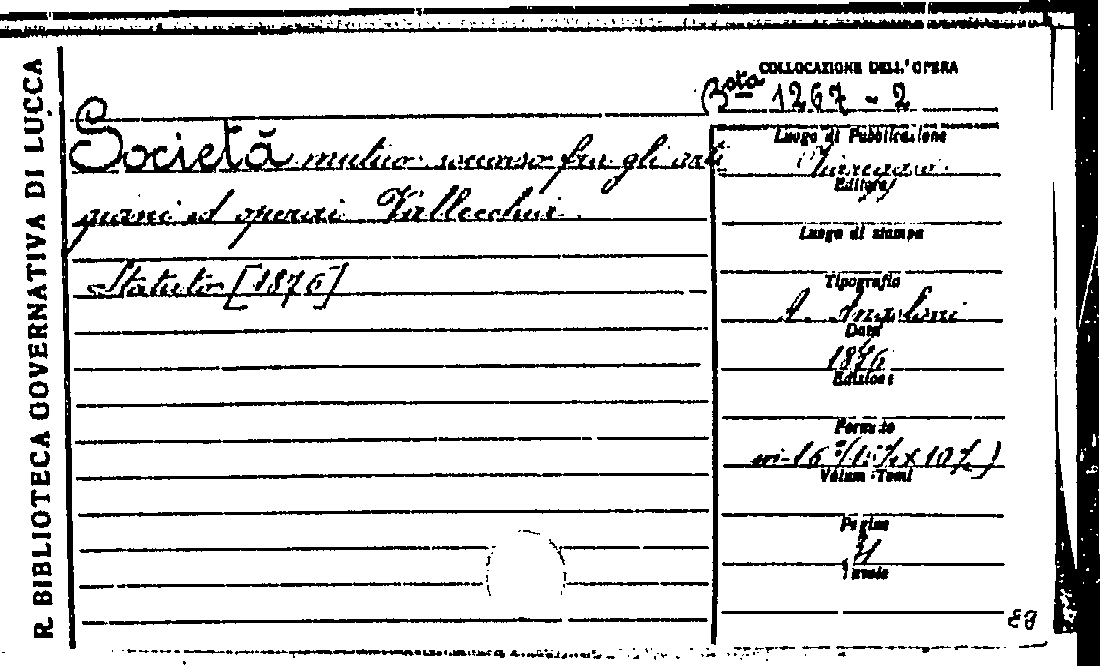 R. BIBLIOTECA GOVERNATIVA DI LUCCA
COLLOCAZIONE DELL'OPERA
Bta 1267 - 2
Società mutuo soccorso fra gli arti
giani ed operai Vallecchia.
Statuto [1876]
Luogo di Pubblicazione
Editore
Luogo di stampa
Tipografia
A.
Data
1876
Edizione
Formato
in-16°
Volumi-Tomi
Pagine
Tavole